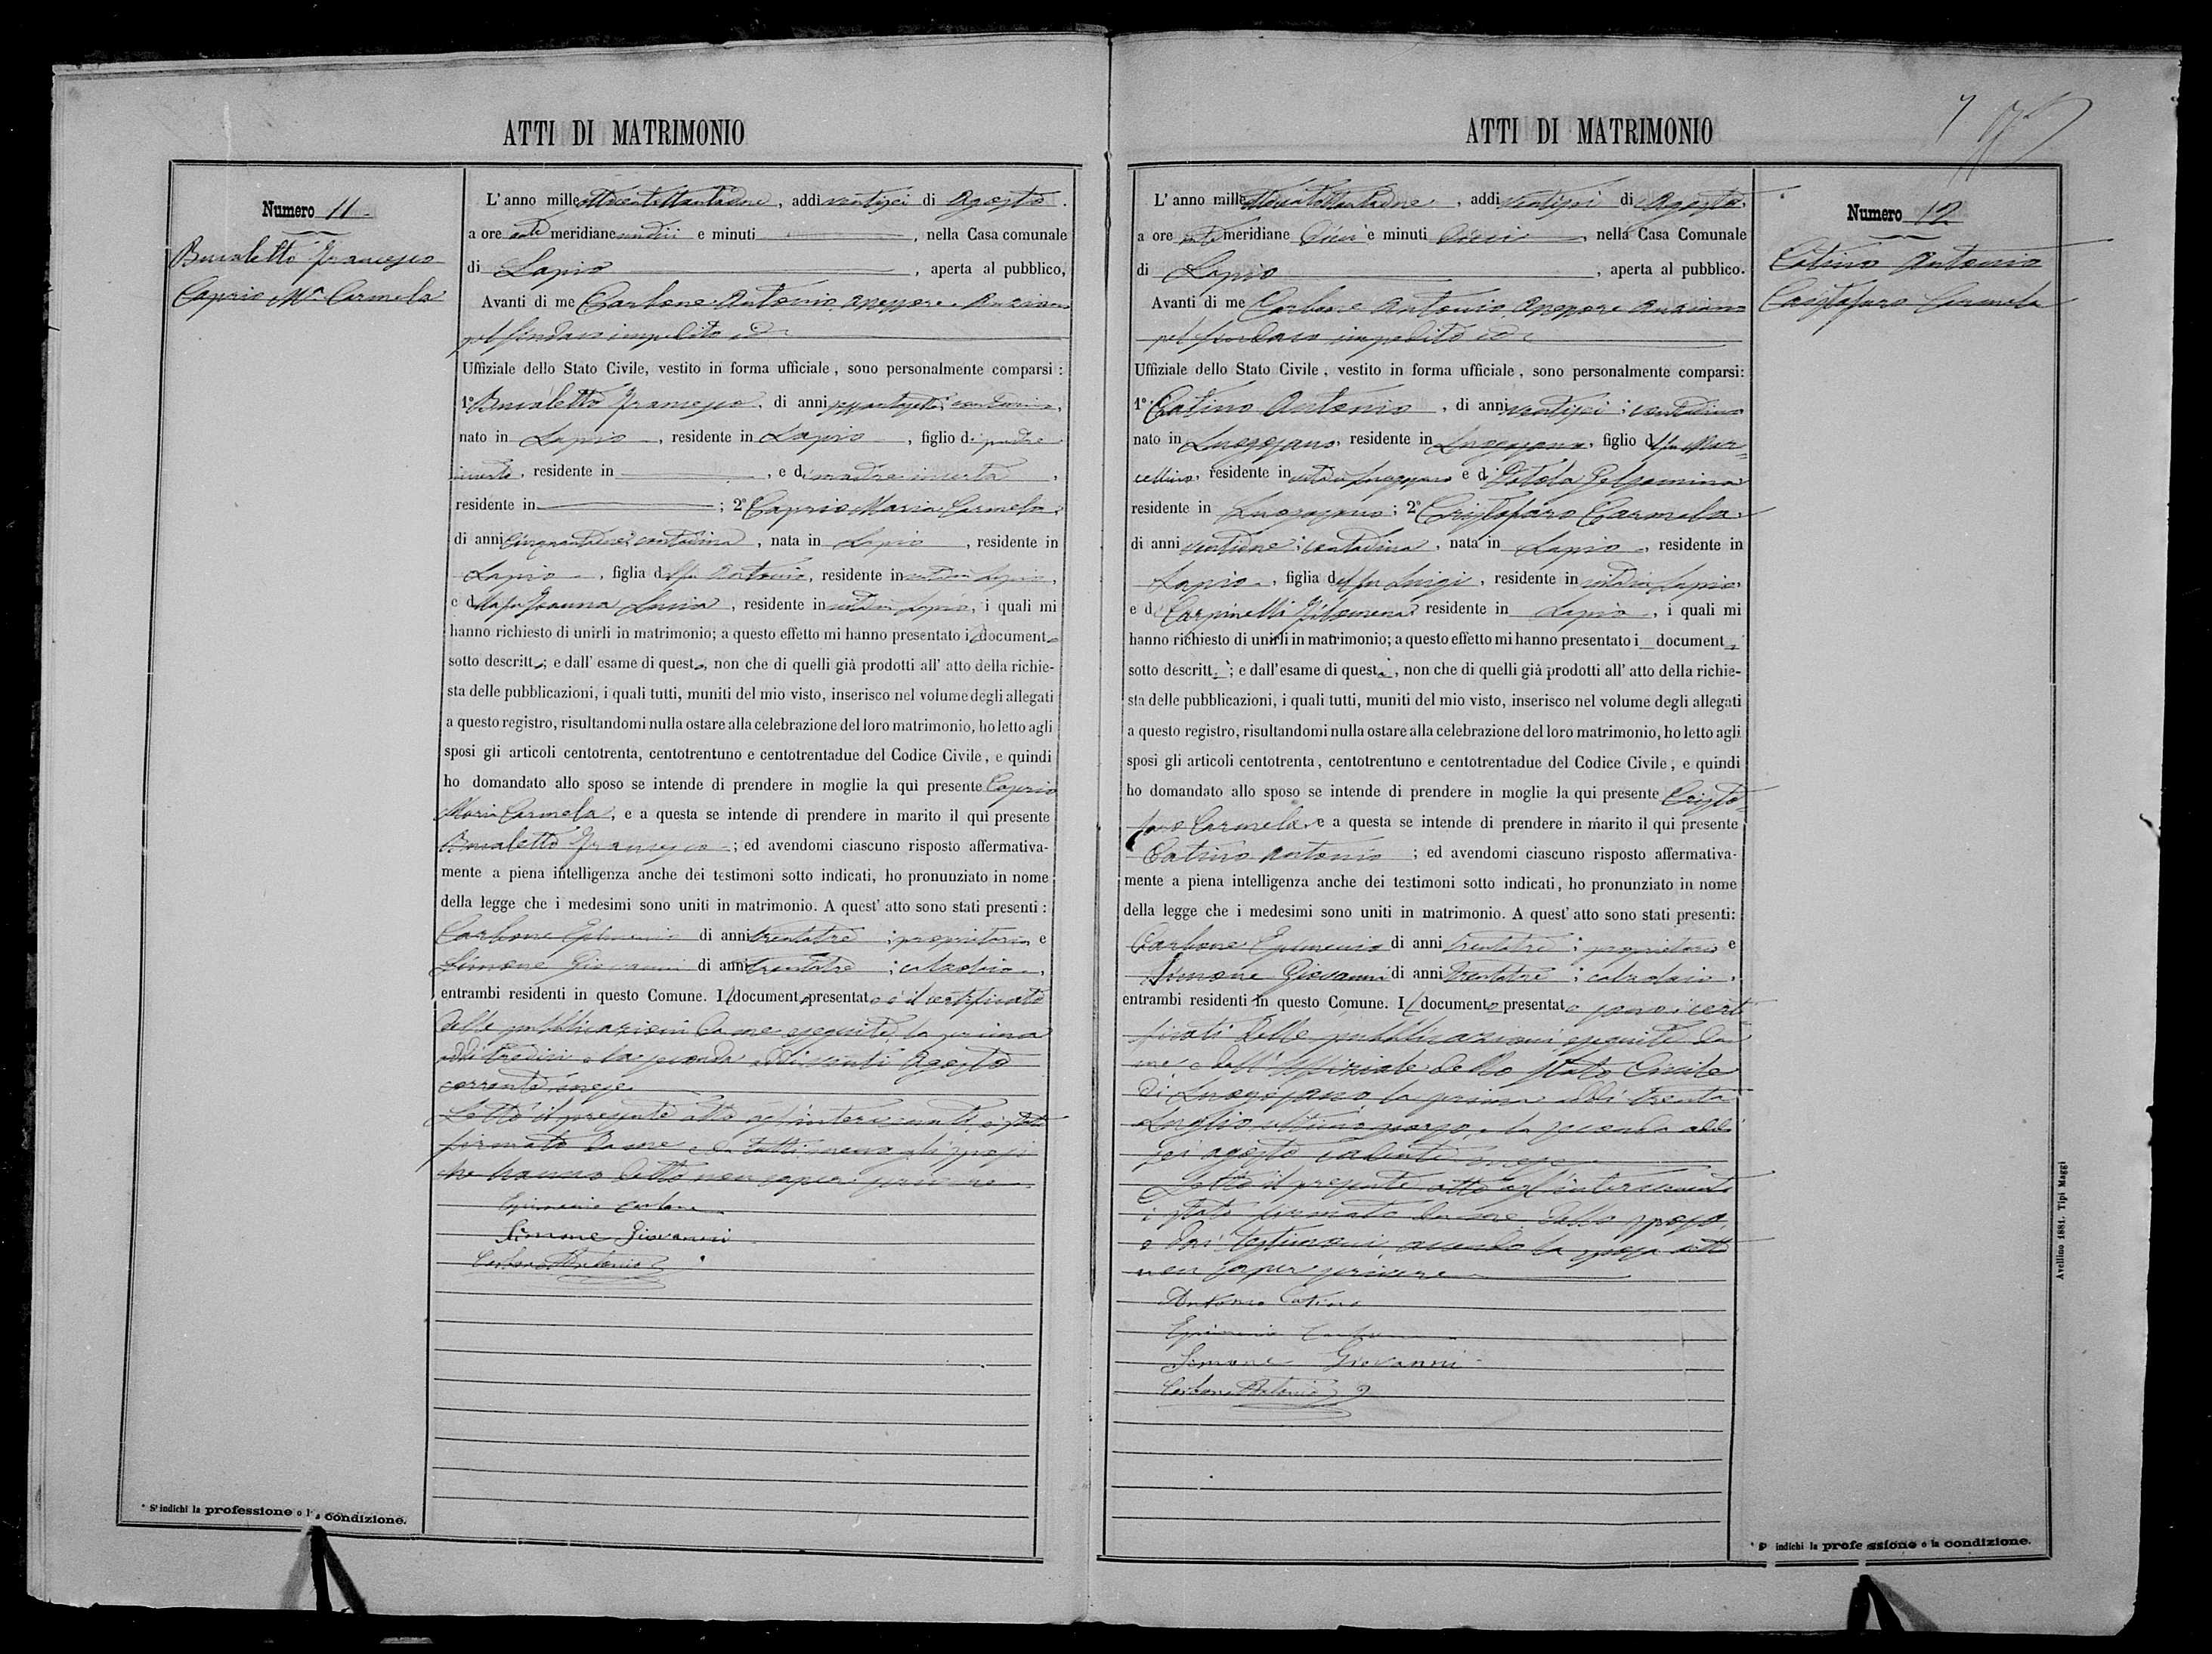 ATTI DI MATRIMONIO
Numero 11.
Caprio Ma Carmela
L'anno milleottocentottantadue, addi ventisei di Agosto.
a ore anti meridiane undici e minuti, nella Casa comunale
di Lapio, aperta al pubblico,
Avanti di me Carbone Antonio, Assessore Anziano
pel Sindaco impedito
Uffiziale dello Stato Civile, vestito in forma ufficiale, sono personalmente comparsi:
1º Francesco, di anni contadino,
nato in Lapio, residente in Lapio, figlio di padre
incerto, residente in, e di madre incerta,
residente in; 2º Caprio Maria Carmela,
di anni cinquantadue contadina, nata in Lapio, residente in
Lapio, figlia del fu Antonio, residente in vita in Lapio,
e della fu Lucia, residente in vita in Lapio, i quali mi
hanno richiesto di unirli in matrimonio; a questo effetto mi hanno presentato i document
sotto descritt; e dall'esame di quest, non che di quelli già prodotti all'atto della richie-
sta delle pubblicazioni, i quali tutti, muniti del mio visto, inserisco nel volume degli allegati
a questo registro, risultandomi nulla ostare alla celebrazione del loro matrimonio, ho letto agli
sposi gli articoli centotrenta, centotrentuno e centotrentadue del Codice Civile, e quindi
ho domandato allo sposo se intende di prendere in moglie la qui presente Caprio
Maria Carmela, e a questa se intende di prendere in marito il qui presente
Francesco; ed avendomi ciascuno risposto affermativa-
mente a piena intelligenza anche dei testimoni sotto indicati, ho pronunziato in nome
della legge che i medesimi sono uniti in matrimonio. A quest'atto sono stati presenti:
Carbone Epimenio di anni trentatre; proprietario e
Simone Giovanni di anni trentatre; calzolaio,
entrambi residenti in questo Comune. Il documento presentato è il certificato
delle pubblicazioni da me eseguite, la prima
addi tredici e la seconda addi venti Agosto
corrente mese.
Letto il presente atto agl'intervenuti è stato
firmato da me e da tutti meno gli sposi
che hanno detto non saper scrivere.
Epimenio Carbone
Simone Giovanni
Carbone Antonio
* S'indichi la professione o la condizione.
ATTI DI MATRIMONIO
7
Numero 12
Catino Antonio
Cristofaro Carmela
L'anno milleottocentottantadue, addi ventisei di Agosto,
a ore anti meridiane dieci e minuti dieci, nella Casa Comunale
di Lapio, aperta al pubblico.
Avanti di me Carbone Antonio, Assessore Anziano
pel Sindaco impedito
Uffiziale dello Stato Civile, vestito in forma ufficiale, sono personalmente comparsi:
1º Catino Antonio, di anni ventisei; contadino
nato in Luogosano, residente in Luogosano, figlio del fu Mar-
cellino, residente in vita in Luogosano e di Gelsomina
residente in Luogosano; 2º Cristofaro Carmela,
di anni ventidue; contadina, nata in Lapio, residente in
Lapio, figlia del fu Luigi, residente in vita in Lapio,
e di Carpinelli Filomena residente in Lapio, i quali mi
hanno richiesto di unirli in matrimonio; a questo effetto mi hanno presentato i document
sotto descritti; e dall'esame di questi, non che di quelli già prodotti all'atto della richie-
sta delle pubblicazioni, i quali tutti, muniti del mio visto, inserisco nel volume degli allegati
a questo registro, risultandomi nulla ostare alla celebrazione del loro matrimonio, ho letto agli
sposi gli articoli centotrenta, centotrentuno e centotrentadue del Codice Civile, e quindi
ho domandato allo sposo se intende di prendere in moglie la qui presente Cristo-
faro Carmela, e a questa se intende di prendere in marito il qui presente
Catino Antonio; ed avendomi ciascuno risposto affermativa-
mente a piena intelligenza anche dei testimoni sotto indicati, ho pronunziato in nome
della legge che i medesimi sono uniti in matrimonio. A quest'atto sono stati presenti:
Carbone Epimenio di anni trentatre; proprietario e
Simone Giovanni di anni trentatre; calzolaio,
entrambi residenti in questo Comune. I documento presentato sono i certi-
ficati delle pubblicazioni eseguite da
me e dall'Uffiziale dello Stato Civile
di Luogosano la prima addi trenta
Luglio ultimo scorso, e la seconda addi
sei agosto cadente mese.
Letto il presente atto agl'intervenuti
è stato firmato da me, dallo sposo,
e dai testimoni, avendo la sposa detto
non saper scrivere
Antonio Catino
Epimenio Carbone
Simone Giovanni
Carbone Antonio
* S' indichi la professione o la condizione.
Avellino 1881. Tipi Maggi